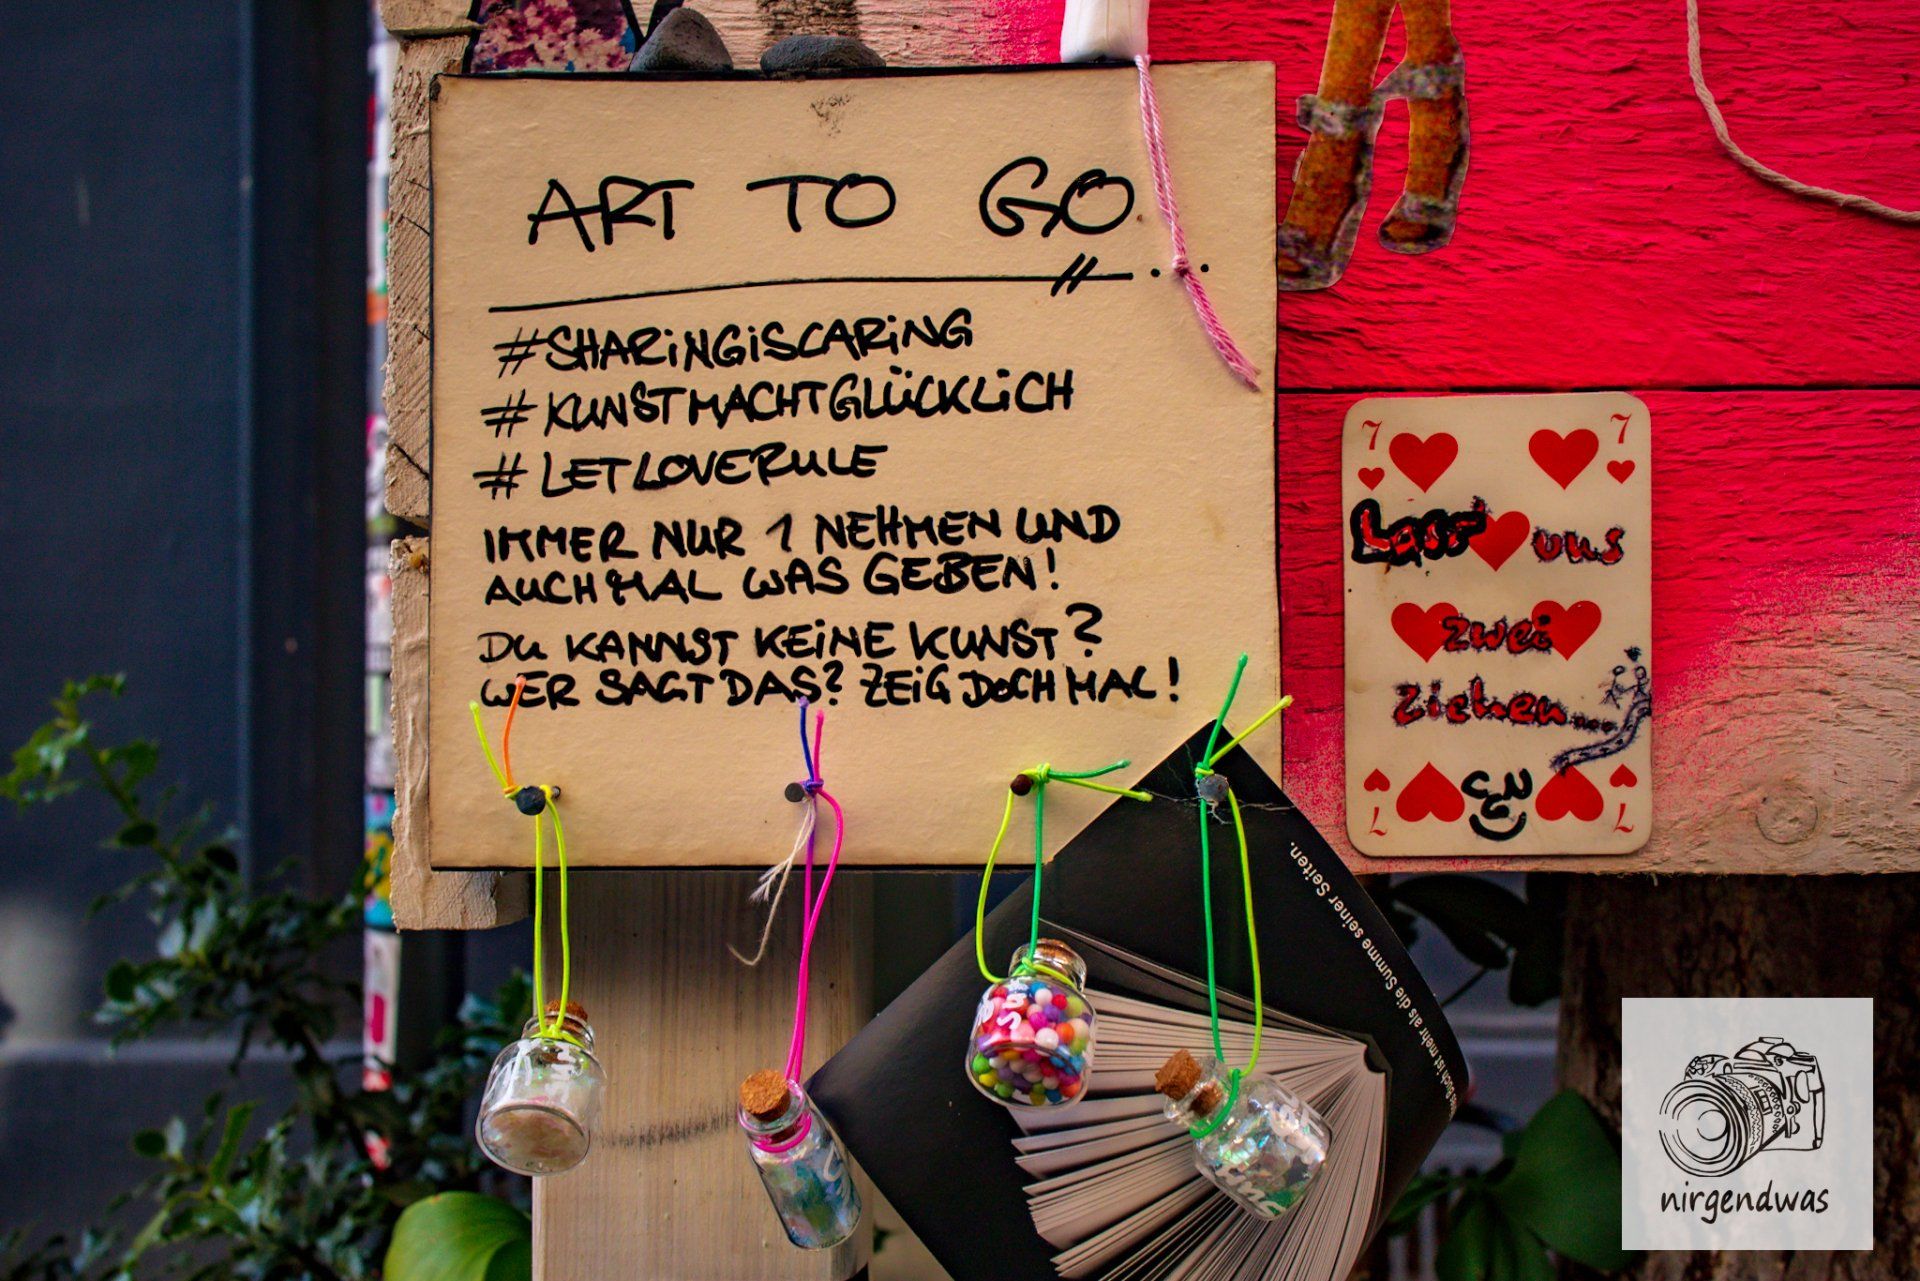 ART TO GO
#SHARiNGiSCARiNG
#KUNSTMACHTGLÜCKLiCH
#LETLOVERULE
IMMER NUR 1 NEHMEN UND
AUCH MAL WAS GEBEN!
DU KANNST KEiNE KUNST?
WER SAGT DAS? ZEiG DOCH MAL!
7 7
Lasst uns
zwei
ziehen...
7 7
Buch ist mehr als die Summe seiner Seiten.
nirgendwas